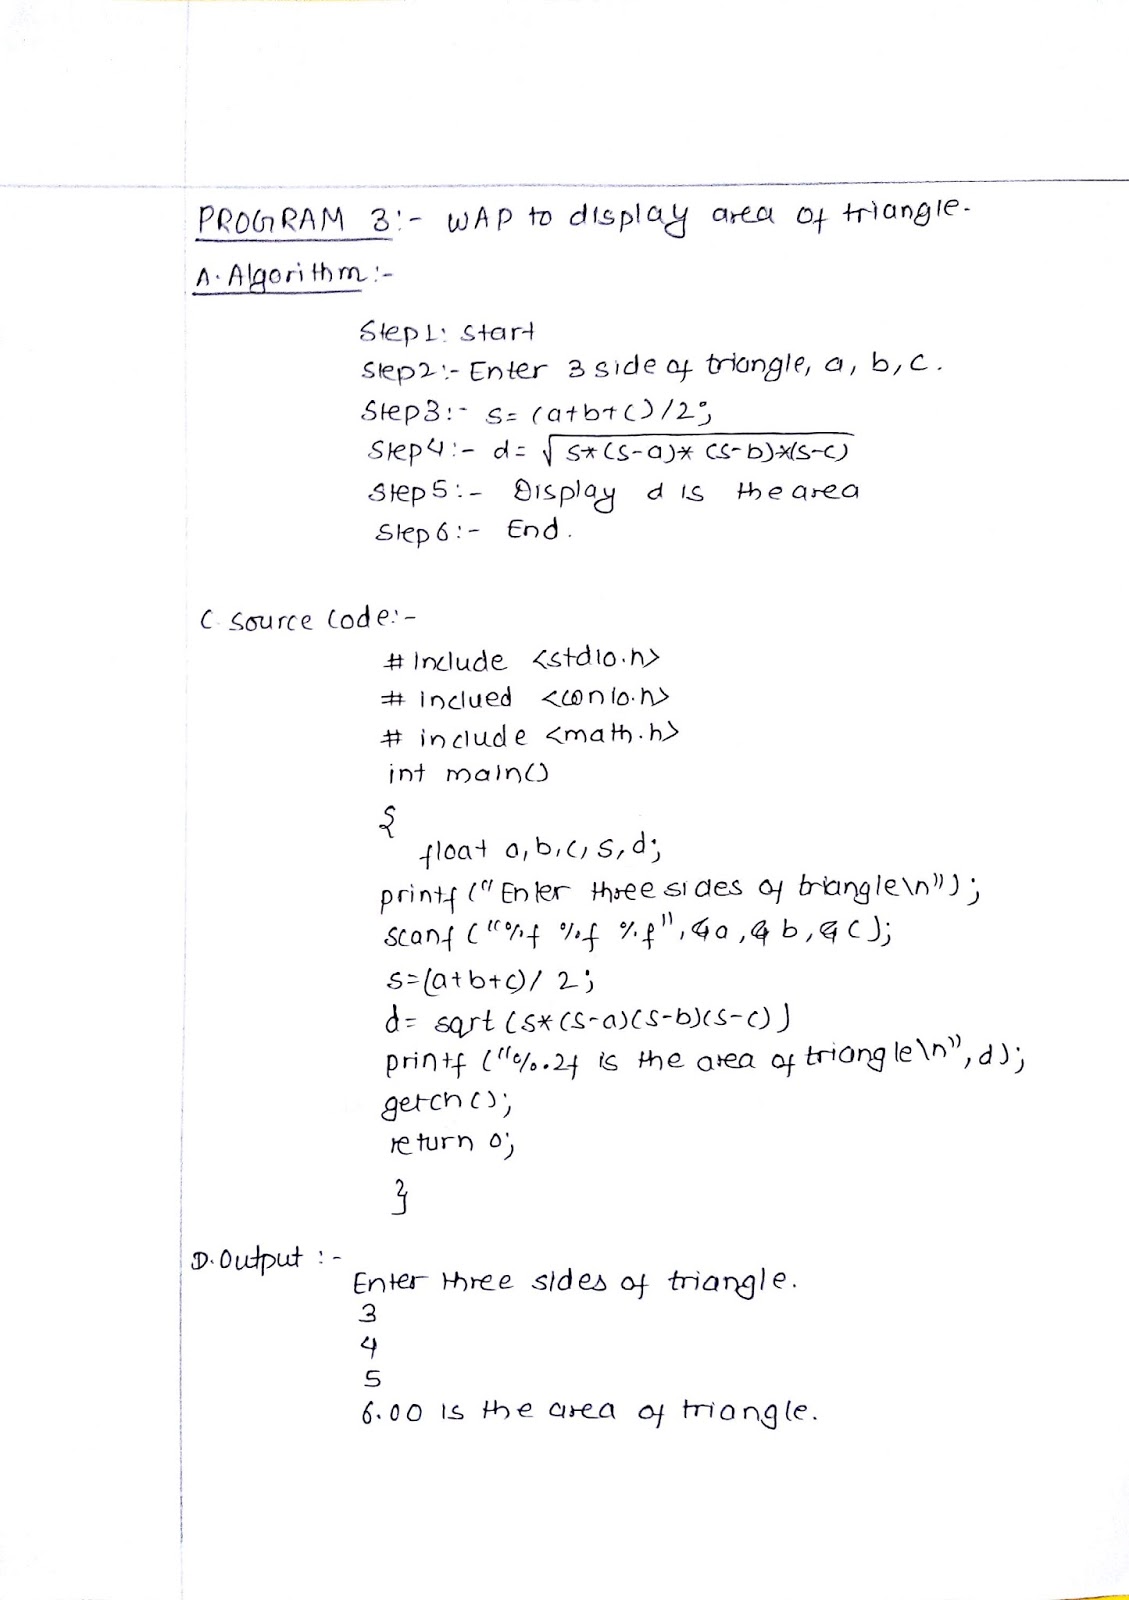 PROGRAM 3:- WAP to display area of triangle.
A. Algorithm:-
Step1: Start
Step2:- Enter 3 side of triangle, a, b, c.
Step3:- s= (a+b+c)/2;
Step4:- d= √s*(s-a)*(s-b)*(s-c)
Step5:- Display d is the area
Step6:- End.
C. Source Code:-
# Include <stdio.h>
# inclued <conio.h>
# include <math.h>
int main()
{
float a,b,c,s,d;
printf ("Enter three sides of triangle\n");
scanf ("%f %f %f", &a, &b, &c);
s=(a+b+c)/ 2;
d= sqrt (s*(s-a)(s-b)(s-c))
printf ("%.2f is the area of triangle\n", d);
getch();
return 0;
}
D. Output :-
Enter three sides of triangle.
3
4
5
6.00 is the area of triangle.